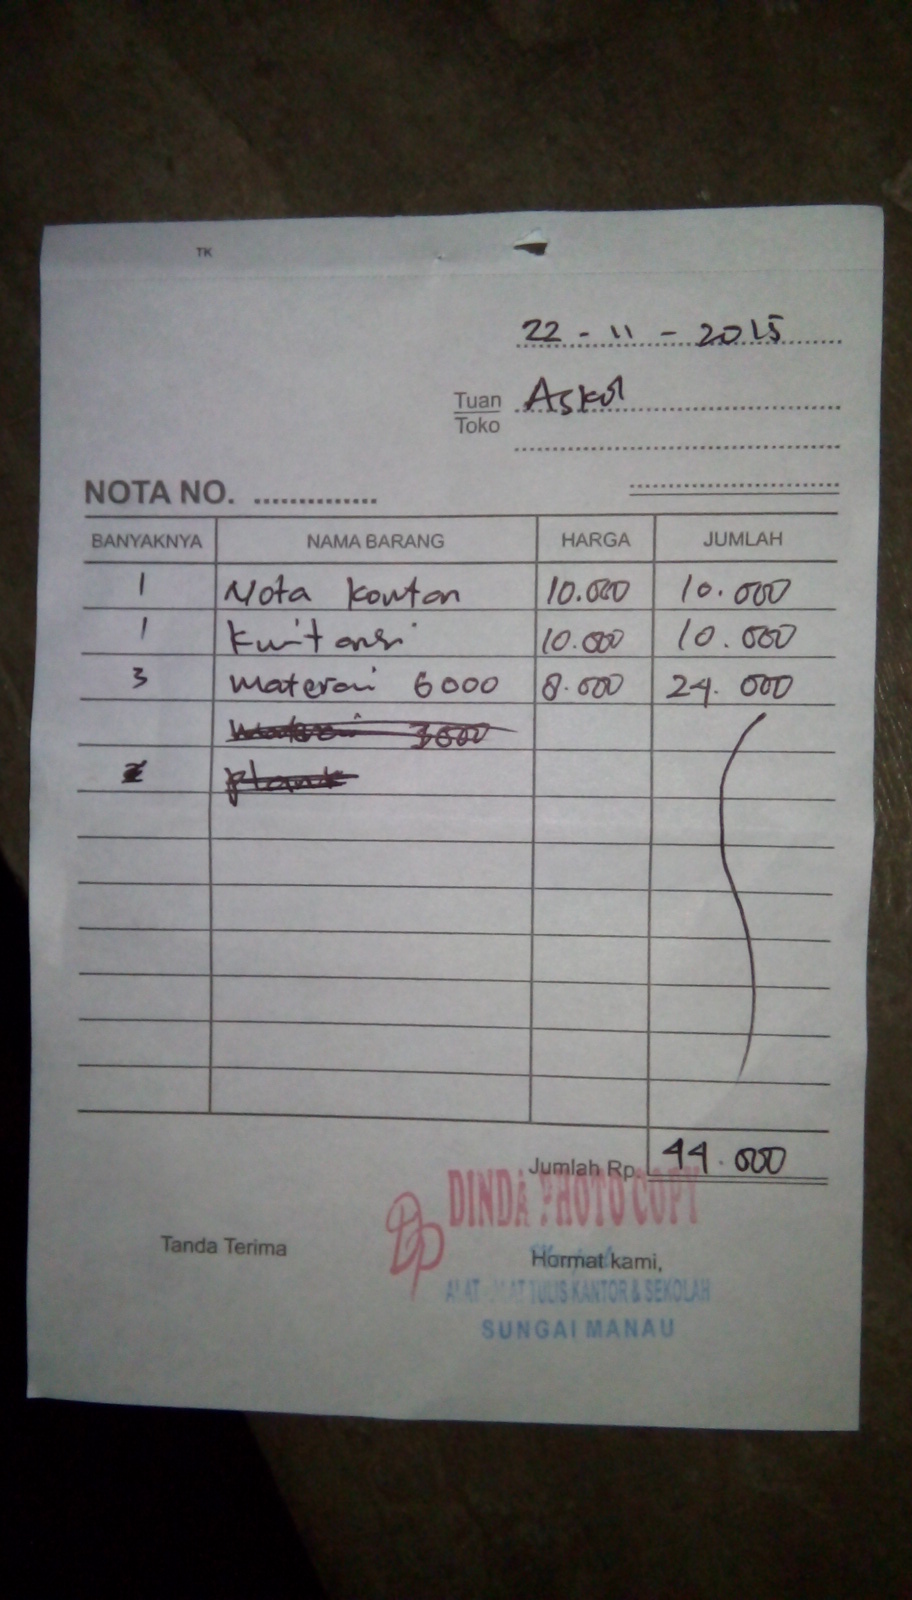 TK
22 - 11 - 2015
Tuan Askol
Toko
NOTA NO. ..............
BANYAKNYA NAMA BARANG HARGA JUMLAH
1 Nota kontan 10.000 10.000
1 Kwitansi 10.000 10.000
3 Materai 6000 8.000 24.000
Materai 3000
Plank
Jumlah Rp. 44.000
DINDA PHOTO COPY
DP
Tanda Terima Hormat kami,
ALAT - ALAT TULIS KANTOR & SEKOLAH
SUNGAI MANAU